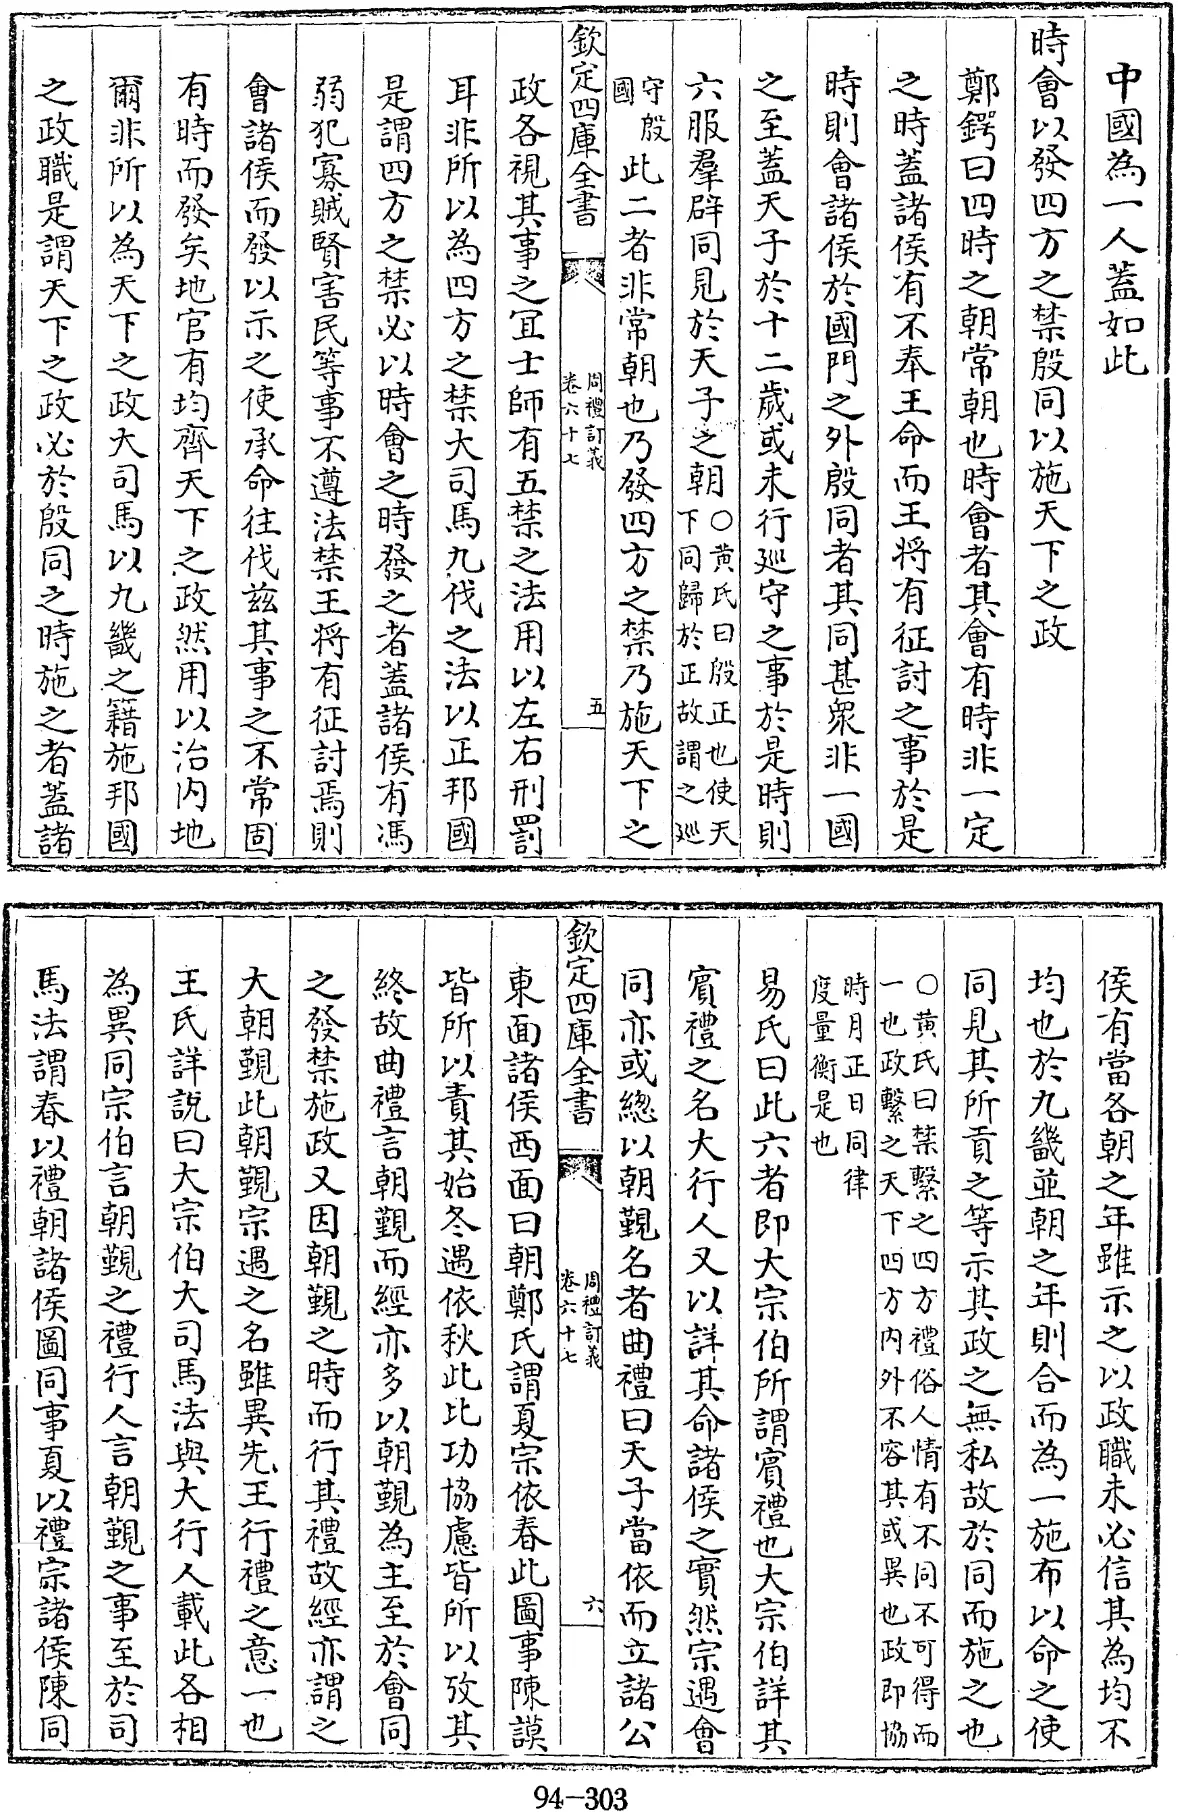 中國為一人蓋如此
時會以發四方之禁殷同以施天下之政
鄭鍔曰四時之朝常朝也時會者其會有時非一定
之時蓋諸侯有不奉王命而王將有征討之事於是
時則會諸侯於國門之外殷同者其同甚衆非一國
之至蓋天子於十二歲或未行廵守之事於是時則
六服羣辟同見於天子之朝○黄氏曰殷正也使天下同歸於正故謂之廵
守殷國此二者非常朝也乃發四方之禁乃施天下之
欽定四庫全書
周禮訂義
卷六十七
五
政各視其事之冝士師有五禁之法用以左右刑罰
耳非所以為四方之禁大司馬九伐之法以正邦國
是謂四方之禁必以時會之時發之者蓋諸侯有馮
弱犯寡賊賢害民等事不遵法禁王將有征討焉則
會諸侯而發以示之使承命往伐兹其事之不常固
有時而發矣地官有均齊天下之政然用以治内地
爾非所以為天下之政大司馬以九畿之籍施邦國
之政職是謂天下之政必於殷同之時施之者蓋諸
侯有當各朝之年雖示之以政職未必信其為均不
均也於九畿並朝之年則合而為一施布以命之使
同見其所貢之等示其政之無私故於同而施之也
○黄氏曰禁繫之四方禮俗人情有不同不可得而
一也政繫之天下四方内外不容其或異也政即協
時月正日同律
度量衡是也
易氏曰此六者即大宗伯所謂賓禮也大宗伯詳其
賓禮之名大行人又以詳其命諸侯之實然宗遇會
同亦或總以朝覲名者曲禮曰天子當依而立諸公
欽定四庫全書
周禮訂義
卷六十七
六
東面諸侯西面曰朝鄭氏謂夏宗依春此圖事陳謨
皆所以責其始冬遇依秋此比功協慮皆所以攷其
終故曲禮言朝覲而經亦多以朝覲為主至於會同
之發禁施政又因朝覲之時而行其禮故經亦謂之
大朝覲此朝覲宗遇之名雖異先王行禮之意一也
王氏詳說曰大宗伯大司馬法與大行人載此各相
為異同宗伯言朝覲之禮行人言朝覲之事至於司
馬法謂春以禮朝諸侯圖同事夏以禮宗諸侯陳同
94-303